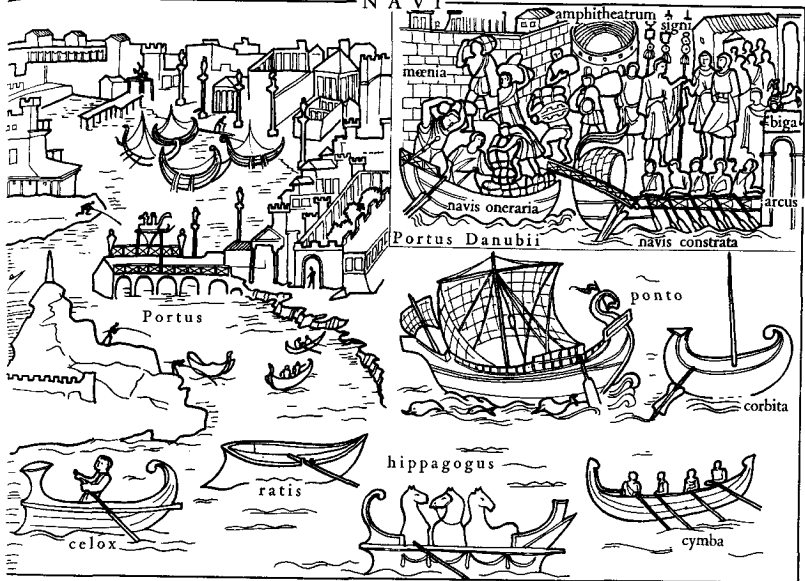 NAVI
amphitheatrum
signi
mœnia
biga
navis oneraria
arcus
Portus Danubii
navis constrata
Portus
ponto
corbita
hippagogus
ratis
celox
cymba